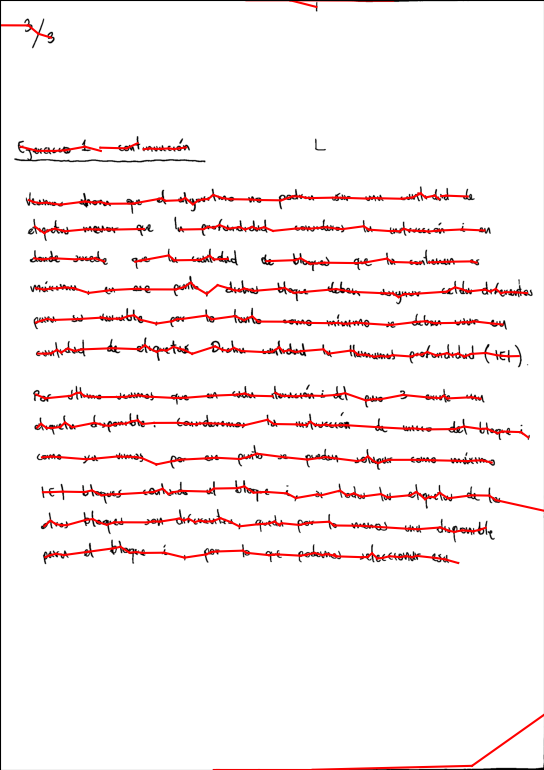 3/3
Ejercicio 1 continuación
L
Veamos ahora que el algoritmo no podría usar una cantidad de
etiquetas menor que la profundidad consideres la instrucción i en
donde sucede que la cantidad de bloques que la contienen es
máxima, en ese punto, dichos bloques deben seguir
por lo tanto como mínimo se deben usar esa
cantidad de etiquetas. Dicha cantidad la llamamos profundidad (|E|).
Por último veamos que en cada iteración i del paso 3 existe una
etiqueta disponible: consideremos la instrucción de inicio del bloque i,
como ya vimos, por ese punto se pueden como máximo
|E| bloques contando el bloque i, si todas las etiquetas de los
otros bloques son diferentes, queda por lo menos una disponible
para el bloque i, por lo que podemos seleccionar esa